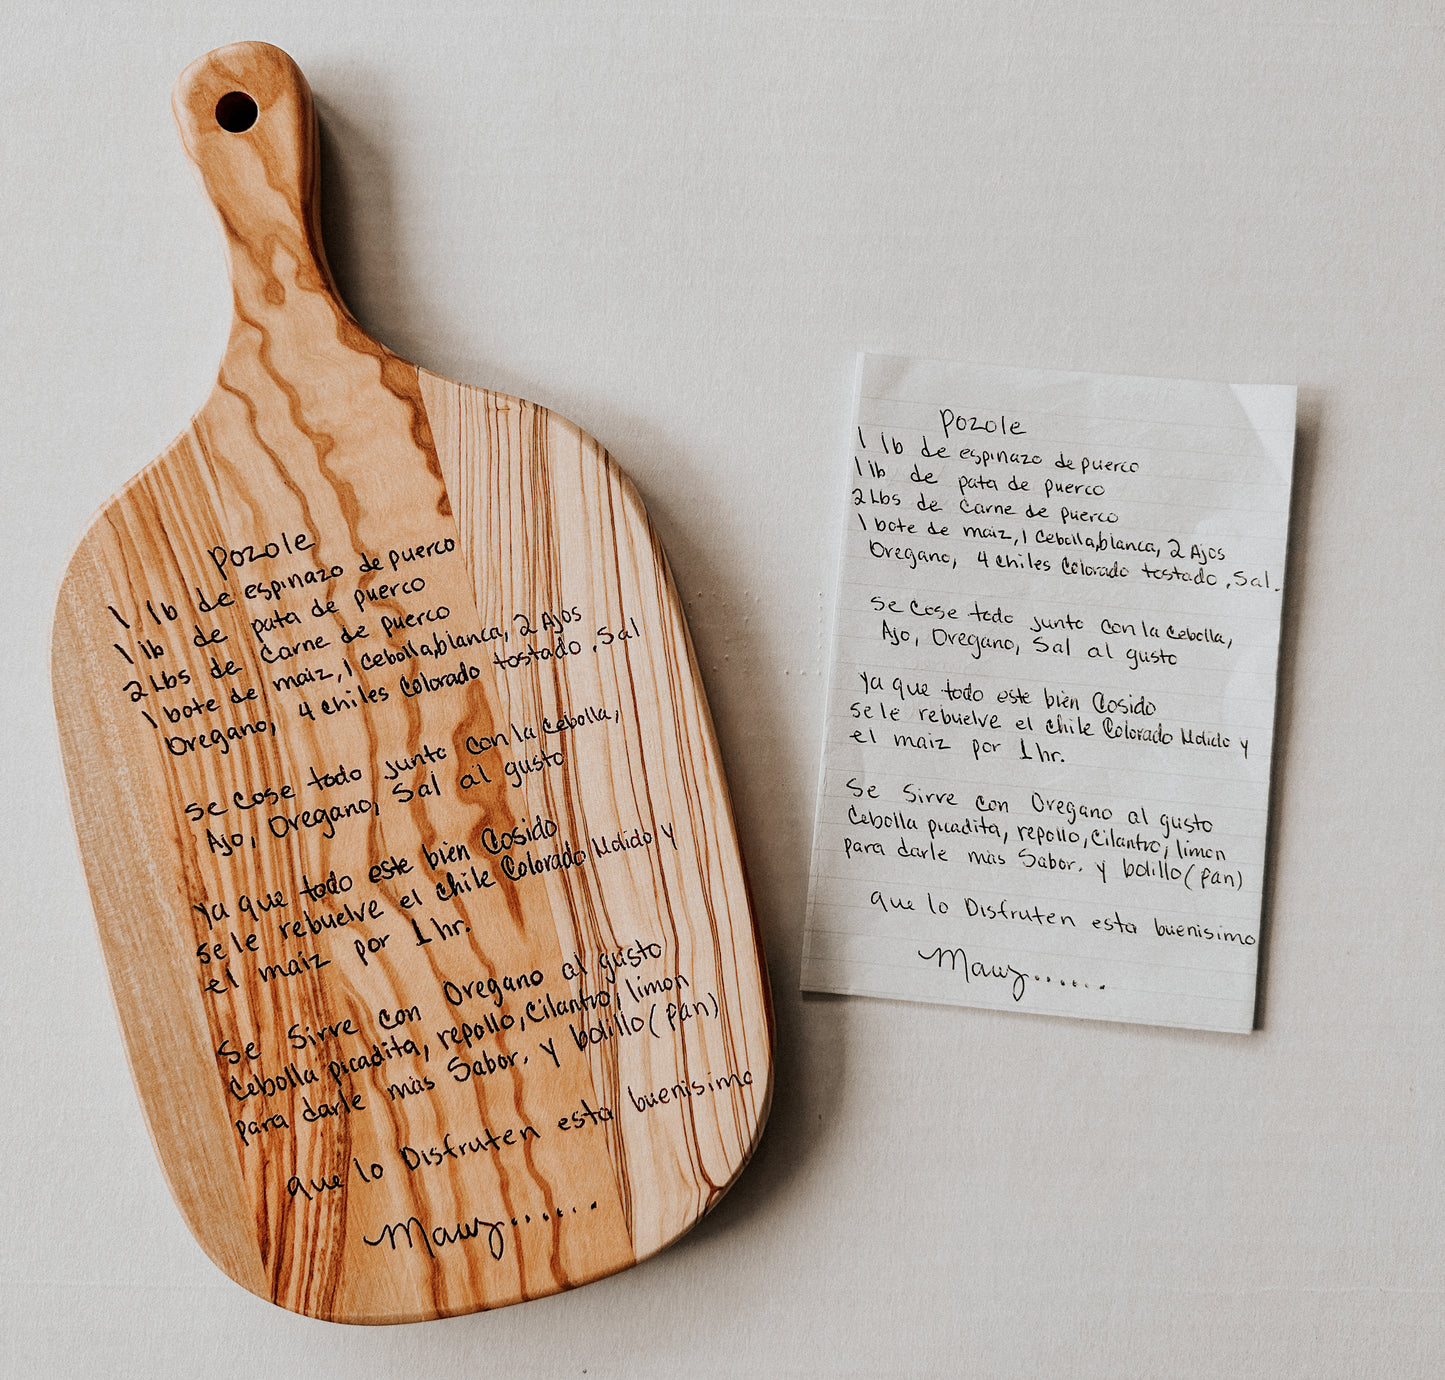 Pozole
1 lb de espinazo de puerco
1 lb de pata de puerco
2 Lbs de Carne de puerco
1 bote de maiz, 1 Cebolla, blanca, 2 Ajos
Oregano, 4 chiles Colorado tostado, Sal
se Cose todo junto con la Cebolla,
Ajo, Oregano, Sal al gusto
Ya que todo este bien Cosido
se le rebuelve el chile Colorado Molido y
el maiz por 1 hr.
Se Sirve con Oregano al gusto
Cebolla picadita, repollo, Cilantro, limon
para darle mas Sabor. y bolillo (pan)
que lo Disfruten esta buenisimo
Pozole
1 lb de espinazo de puerco
1 lb de pata de puerco
2 Lbs de Carne de puerco
1 bote de maiz, 1 Cebolla, blanca, 2 Ajos
Oregano, 4 chiles Colorado tostado, Sal.
se Cose todo junto con la Cebolla,
Ajo, Oregano, Sal al gusto
Ya que todo este bien Cosido
se le rebuelve el chile Colorado Molido y
el maiz por 1 hr.
Se Sirve con Oregano al gusto
Cebolla picadita, repollo, Cilantro, limon
para darle mas Sabor. y bolillo (pan)
que lo Disfruten esta buenisimo